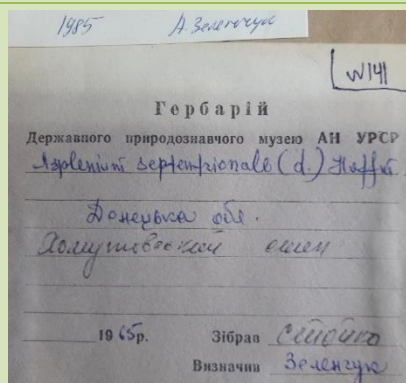 1985 А. Зеленчук
№141
Гербарій
Державного природознавчого музею АН УРСР
Asplenium septentrionale (L.) Hoffm
Донецька обл.
Хомутовский степ
1965р. Зібрав Стойко
Визначив Зеленчук